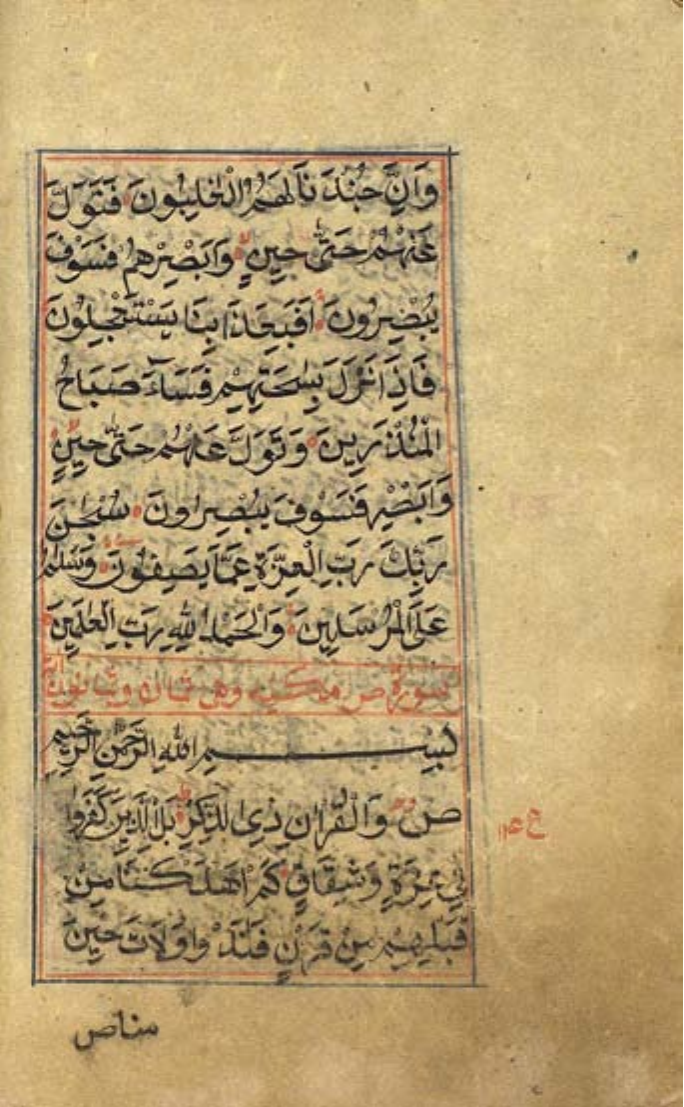 وَاِنَّ جُنْدَ نَا لَهُمُ الْغٰلِبُونَ فَتَوَلَّ
عَنْهُمْ حَتّٰى حِينٍ وَاَبْصِرْهُمْ فَسَوْفَ
يُبْصِرُونَ اَفَبِعَذَابِنَا يَسْتَعْجِلُونَ
فَاِذَا نَزَلَ بِسَاحَتِهِمْ فَسَاۤءَ صَبَاحُ
الْمُنْذَرِينَ وَتَوَلَّ عَنْهُمْ حَتّٰى حِينٍ
وَاَبْصِرْ فَسَوْفَ يُبْصِرُونَ سُبْحٰنَ
رَبِّكَ رَبِّ الْعِزَّةِ عَمَّا يَصِفُونَ وَسَلٰمٌ
عَلَى الْمُرْسَلِينَ وَالْحَمْدُ لِلّٰهِ رَبِّ الْعٰلَمِينَ
سورة ص مكية وهى ثمان وثمانون اية
بِسْمِ اللّٰهِ الرَّحْمٰنِ الرَّحِيمِ
ص وَالْقُرْاٰنِ ذِى الذِّكْرِ بَلِ الَّذِينَ كَفَرُوا
فِى عِزَّةٍ وَشِقَاقٍ كَمْ اَهْلَكْنَا مِنْ
قَبْلِهِمْ مِنْ قَرْنٍ فَنَادَوْا وَلَاتَ حِينَ
مناص